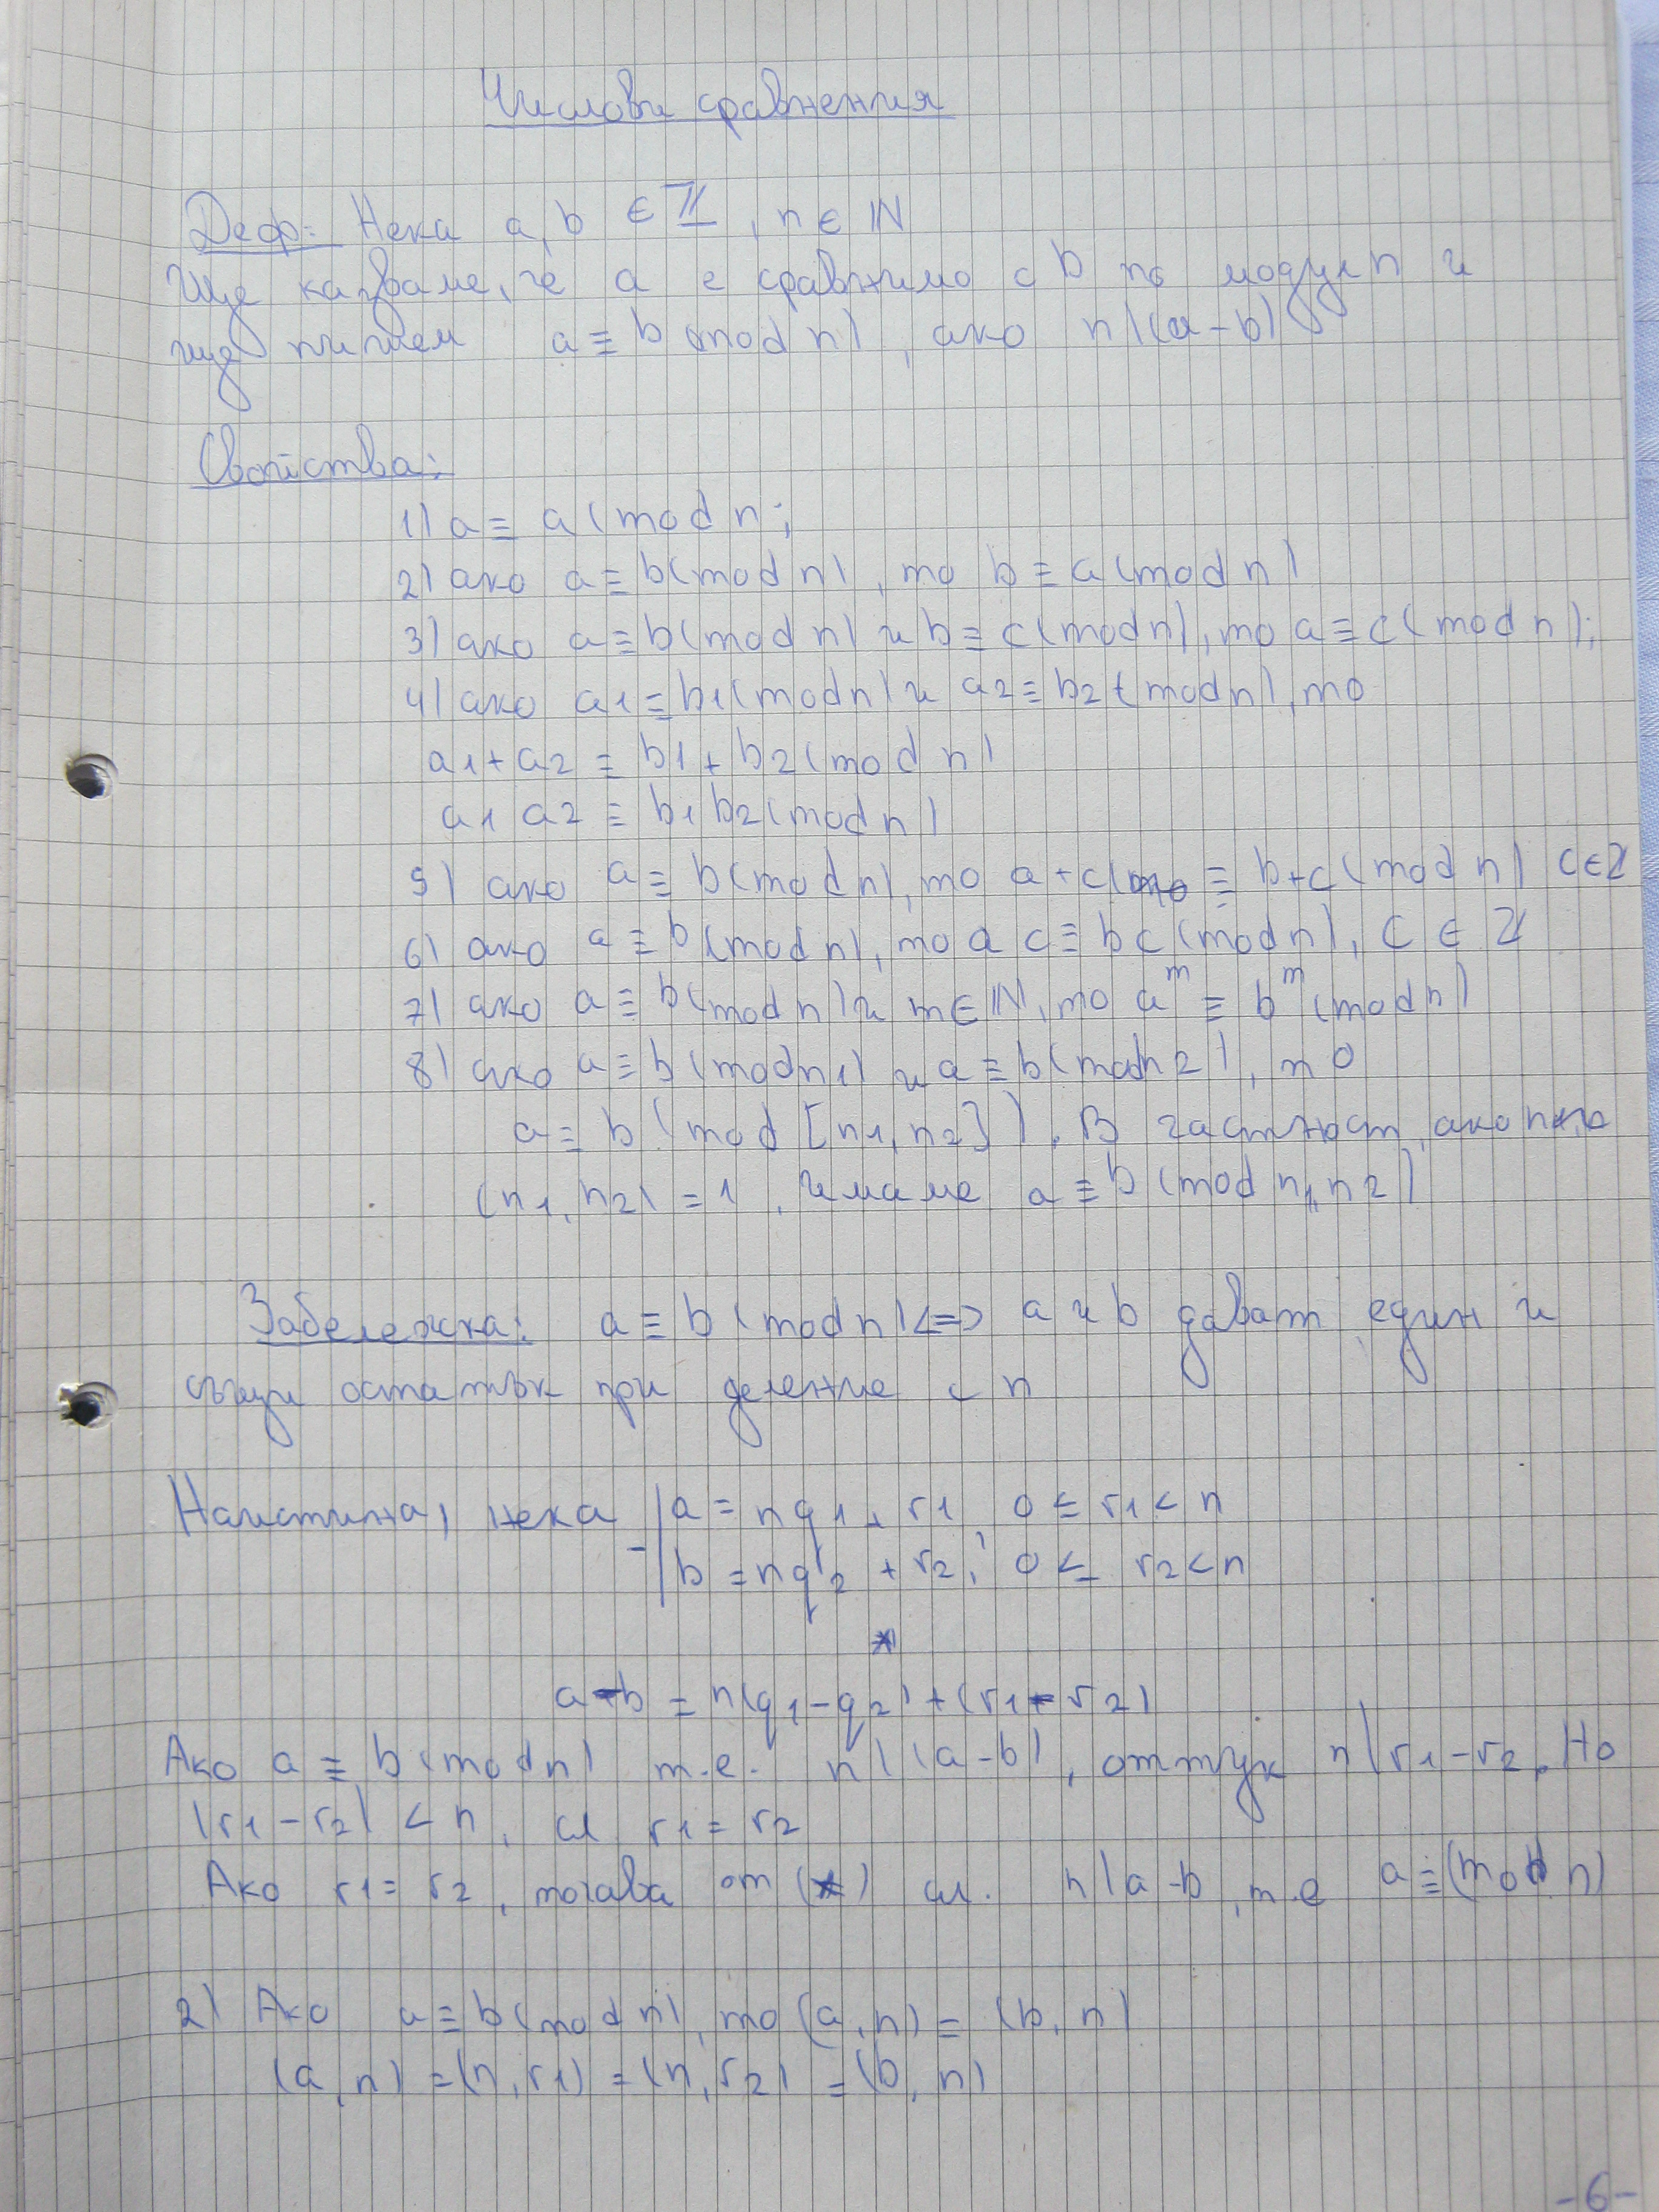 Числови сравнения
Деф: Нека a, b ∈ ℤ, n ∈ ℕ
Ще казваме, че a е сравнимо с b по модул n и
ще пишем a ≡ b (mod n), ако n|(a-b)
Свойства:
1) a ≡ a (mod n;
2) ако a ≡ b(mod n), то b ≡ a(mod n)
3) ако a ≡ b(mod n) и b ≡ c(mod n), то a ≡ c(mod n);
4) ако a1 ≡ b1(mod n) и a2 ≡ b2(mod n), то
a1+a2 ≡ b1+b2(mod n)
a1 a2 ≡ b1 b2(mod n)
5) ако a ≡ b(mod n), то a+c ≡ b+c(mod n) c∈ℤ
6) ако a ≡ b(mod n), то a c ≡ bc(mod n), c ∈ ℤ
7) ако a ≡ b(mod n) и m∈ℕ, то a^m ≡ b^m (mod n)
8) ако a ≡ b(mod n1) и a ≡ b(mod n2), то
a ≡ b (mod [n1, n2]). В частност, ако
(n1, n2) = 1, имаме a ≡ b (mod n1 n2)
Забележка: a ≡ b (mod n) <=> a и b дават един и
същи остатък при деление с n
Наистина, нека | a = nq1 + r1, 0 ≤ r1 < n
| b = nq2 + r2, 0 ≤ r2 < n
*
a-b = n(q1-q2) + (r1-r2)
Ако a ≡ b(mod n) т.е. n|(a-b), оттук n|r1-r2. Но
|r1-r2| < n, сл r1 = r2
Ако r1 = r2, тогава от (*) сл. n|a-b, т.е a ≡ (mod n)
2) Ако a ≡ b(mod n), то (a, n) = (b, n)
(a, n) = (n, r1) = (n, r2) = (b, n)
-6-